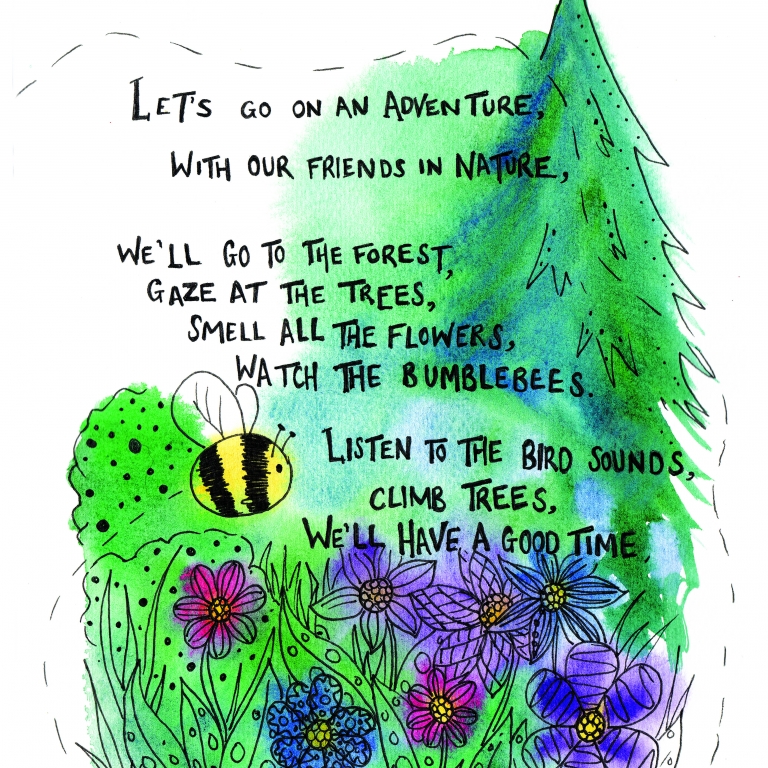 LET'S GO ON AN ADVENTURE,
WITH OUR FRIENDS IN NATURE,
WE'LL GO TO THE FOREST,
GAZE AT THE TREES,
SMELL ALL THE FLOWERS,
WATCH THE BUMBLEBEES.
LISTEN TO THE BIRD SOUNDS,
CLIMB TREES,
WE'LL HAVE A GOOD TIME,